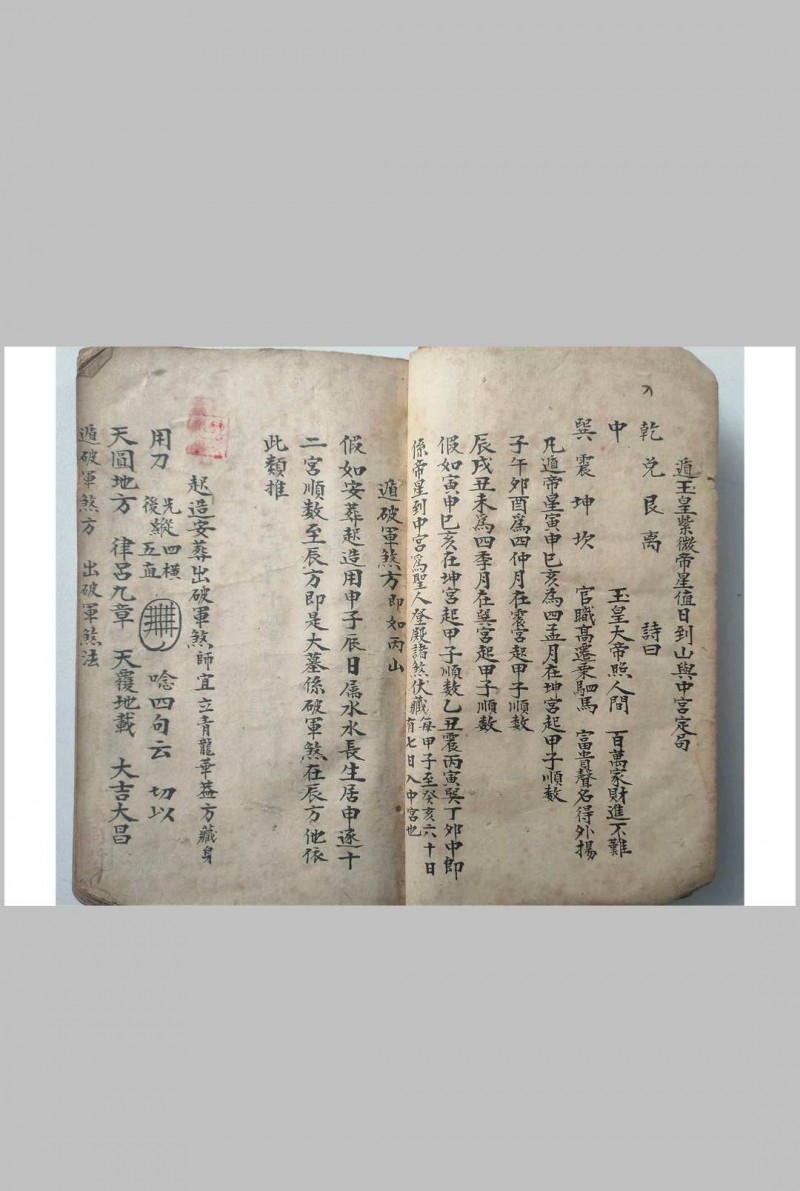 遁玉皇紫微帝星值日到山與中宮定局
乾兌艮离 詩曰
中 玉皇大帝照人間 百萬家財進不難
巽震坤坎 官職高遷乘駟馬 富貴聲名得外揚
凡遁帝星寅申巳亥為四孟月在坤宮起甲子順数
子午卯酉為四仲月在震宮起甲子順数
辰戌丑未為四季月在巽宮起甲子順数
假如寅申巳亥在坤宮起甲子順数乙丑震丙寅巽丁卯中即
係帝星到中宮為聖人登殿諸煞伏藏每甲子至癸亥六十日
有七日入中宮也
遁破軍煞方即如丙山
假如安葬起造用甲子辰日属水水長生居申逐十
二宮順数至辰方即是大墓係破軍煞在辰方他依
此類推
起造安葬出破軍煞師宜立青龍華蓋方藏身
用刀 先縱四橫
後縱五直 唸四句云 切以
天圓地方 律呂九章 天覆地載 大吉大昌
遁破軍煞方 出破軍煞法